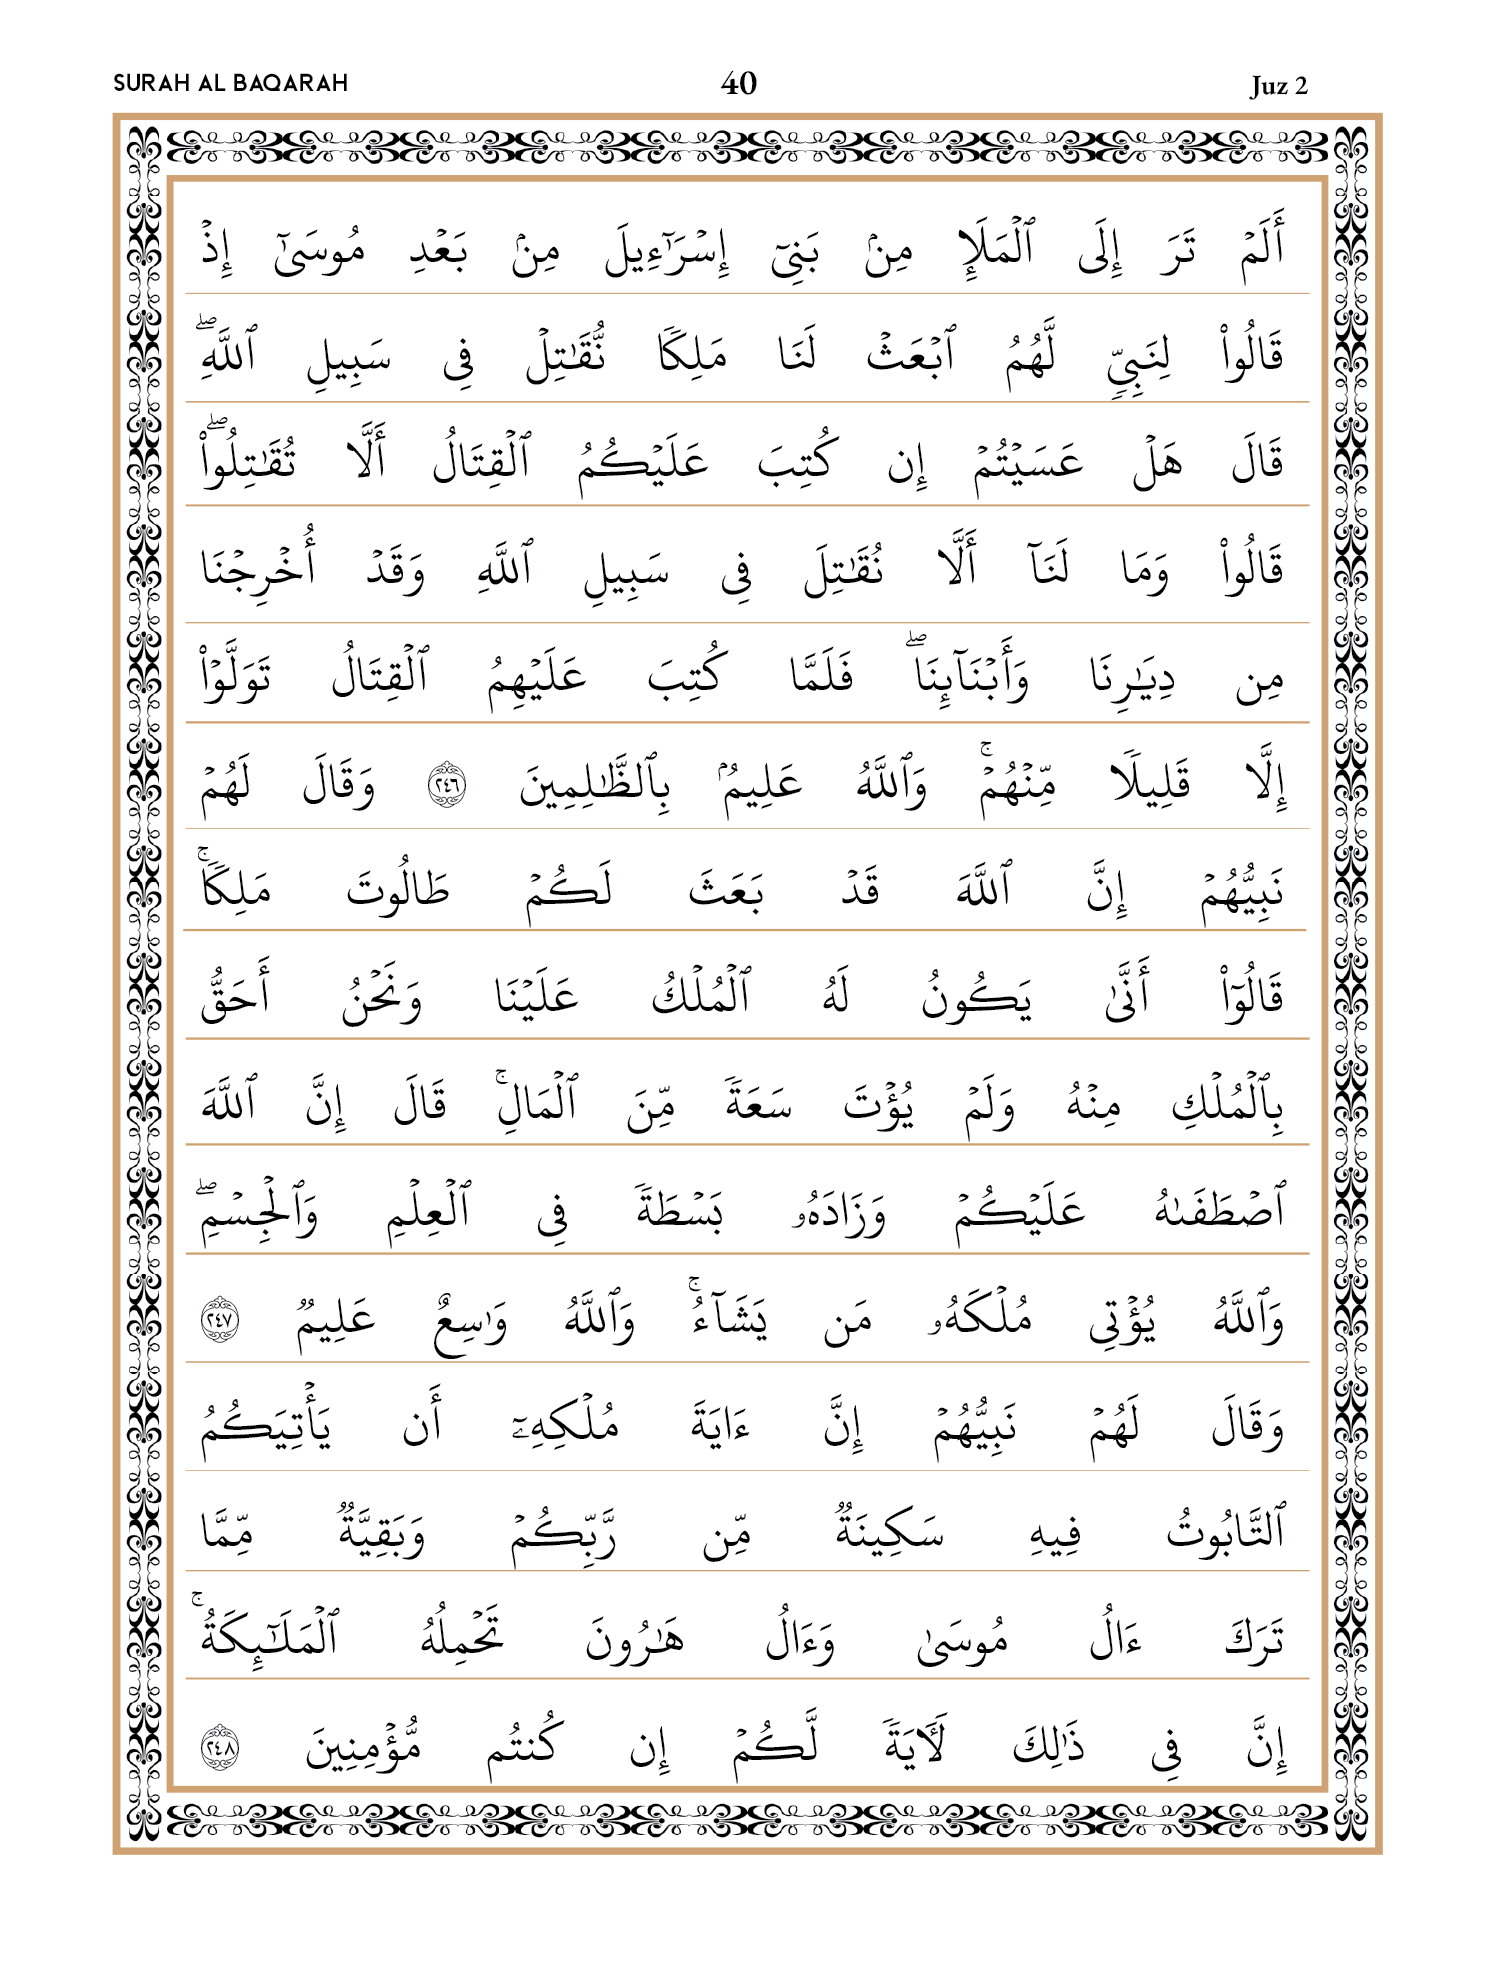 SURAH AL BAQARAH 40 Juz 2
أَلَمۡ تَرَ إِلَى ٱلۡمَلَإِ مِنۢ بَنِيٓ إِسۡرَـٰٓءِيلَ مِنۢ بَعۡدِ مُوسَىٰٓ إِذۡ
قَالُواْ لِنَبِيّٖ لَّهُمُ ٱبۡعَثۡ لَنَا مَلِكٗا نُّقَٰتِلۡ فِي سَبِيلِ ٱللَّهِۖ
قَالَ هَلۡ عَسَيۡتُمۡ إِن كُتِبَ عَلَيۡكُمُ ٱلۡقِتَالُ أَلَّا تُقَٰتِلُواْۖ
قَالُواْ وَمَا لَنَآ أَلَّا نُقَٰتِلَ فِي سَبِيلِ ٱللَّهِ وَقَدۡ أُخۡرِجۡنَا
مِن دِيَٰرِنَا وَأَبۡنَآئِنَاۖ فَلَمَّا كُتِبَ عَلَيۡهِمُ ٱلۡقِتَالُ تَوَلَّوۡاْ
إِلَّا قَلِيلٗا مِّنۡهُمۡۚ وَٱللَّهُ عَلِيمُۢ بِٱلظَّٰلِمِينَ ٢٤٦ وَقَالَ لَهُمۡ
نَبِيُّهُمۡ إِنَّ ٱللَّهَ قَدۡ بَعَثَ لَكُمۡ طَالُوتَ مَلِكٗاۚ
قَالُوٓاْ أَنَّىٰ يَكُونُ لَهُ ٱلۡمُلۡكُ عَلَيۡنَا وَنَحۡنُ أَحَقُّ
بِٱلۡمُلۡكِ مِنۡهُ وَلَمۡ يُؤۡتَ سَعَةٗ مِّنَ ٱلۡمَالِۚ قَالَ إِنَّ ٱللَّهَ
ٱصۡطَفَىٰهُ عَلَيۡكُمۡ وَزَادَهُۥ بَسۡطَةٗ فِي ٱلۡعِلۡمِ وَٱلۡجِسۡمِۖ
وَٱللَّهُ يُؤۡتِي مُلۡكَهُۥ مَن يَشَآءُۚ وَٱللَّهُ وَٰسِعٌ عَلِيمٞ ٢٤٧
وَقَالَ لَهُمۡ نَبِيُّهُمۡ إِنَّ ءَايَةَ مُلۡكِهِۦٓ أَن يَأۡتِيَكُمُ
ٱلتَّابُوتُ فِيهِ سَكِينَةٞ مِّن رَّبِّكُمۡ وَبَقِيَّةٞ مِّمَّا
تَرَكَ ءَالُ مُوسَىٰ وَءَالُ هَٰرُونَ تَحۡمِلُهُ ٱلۡمَلَـٰٓئِكَةُۚ
إِنَّ فِي ذَٰلِكَ لَأٓيَةٗ لَّكُمۡ إِن كُنتُم مُّؤۡمِنِينَ ٢٤٨